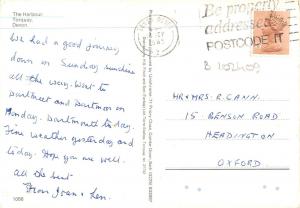 The Harbour,
Torquay,
Devon
We had a good journey
down on Sunday sunshine
all the way. Went to
Dartmeet and Dartmoor on
Monday. Dartmouth today.
Fine weather yesterday and
today. Hope you are well.
All the best
from Joan & Len.
1086
Be properly
addressed
POSTCODE IT
MR & MRS. R. CANN.
15 BENSON ROAD
HEADINGTON
OXFORD.